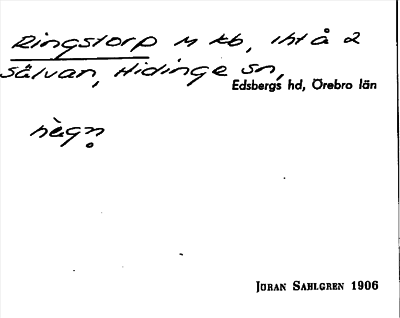 Ringstorp M kb, iht å 2
sälvan, Hidinge sn,
Edsbergs hd, Örebro län
hägn
Jöran Sahlgren 1906